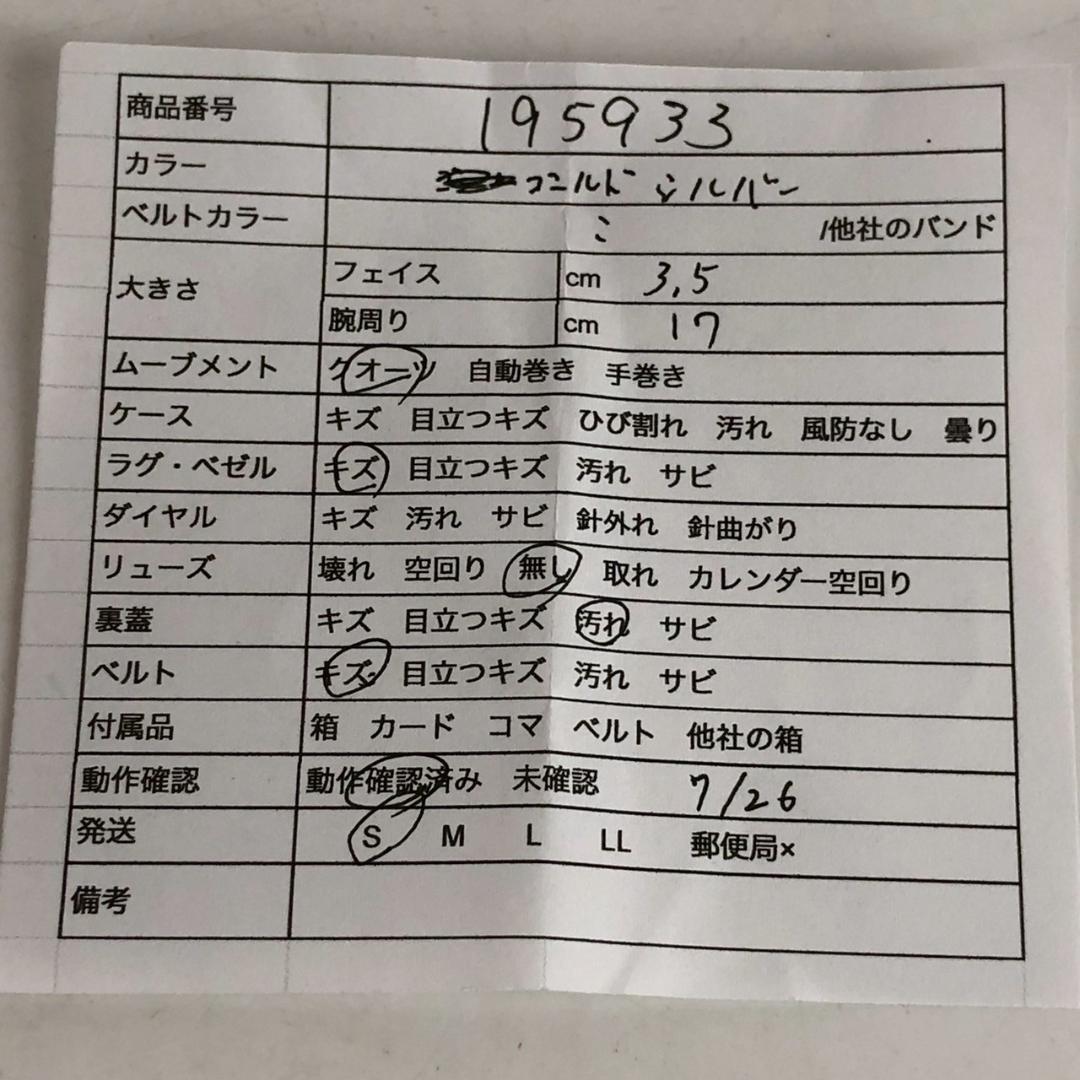 商品番号 195933
カラー ゴールド シルバー
ベルトカラー /他社のバンド
大きさ フェイス cm 3,5
腕周り cm 17
ムーブメント クオーツ 自動巻き 手巻き
ケース キズ 目立つキズ ひび割れ 汚れ 風防なし 曇り
ラグ・ベゼル キズ 目立つキズ 汚れ サビ
ダイヤル キズ 汚れ サビ 針外れ 針曲がり
リューズ 壊れ 空回り 無し 取れ カレンダー空回り
裏蓋 キズ 目立つキズ 汚れ サビ
ベルト キズ 目立つキズ 汚れ サビ
付属品 箱 カード コマ ベルト 他社の箱
動作確認 動作確認済み 未確認 7/26
発送 S M L LL 郵便局×
備考